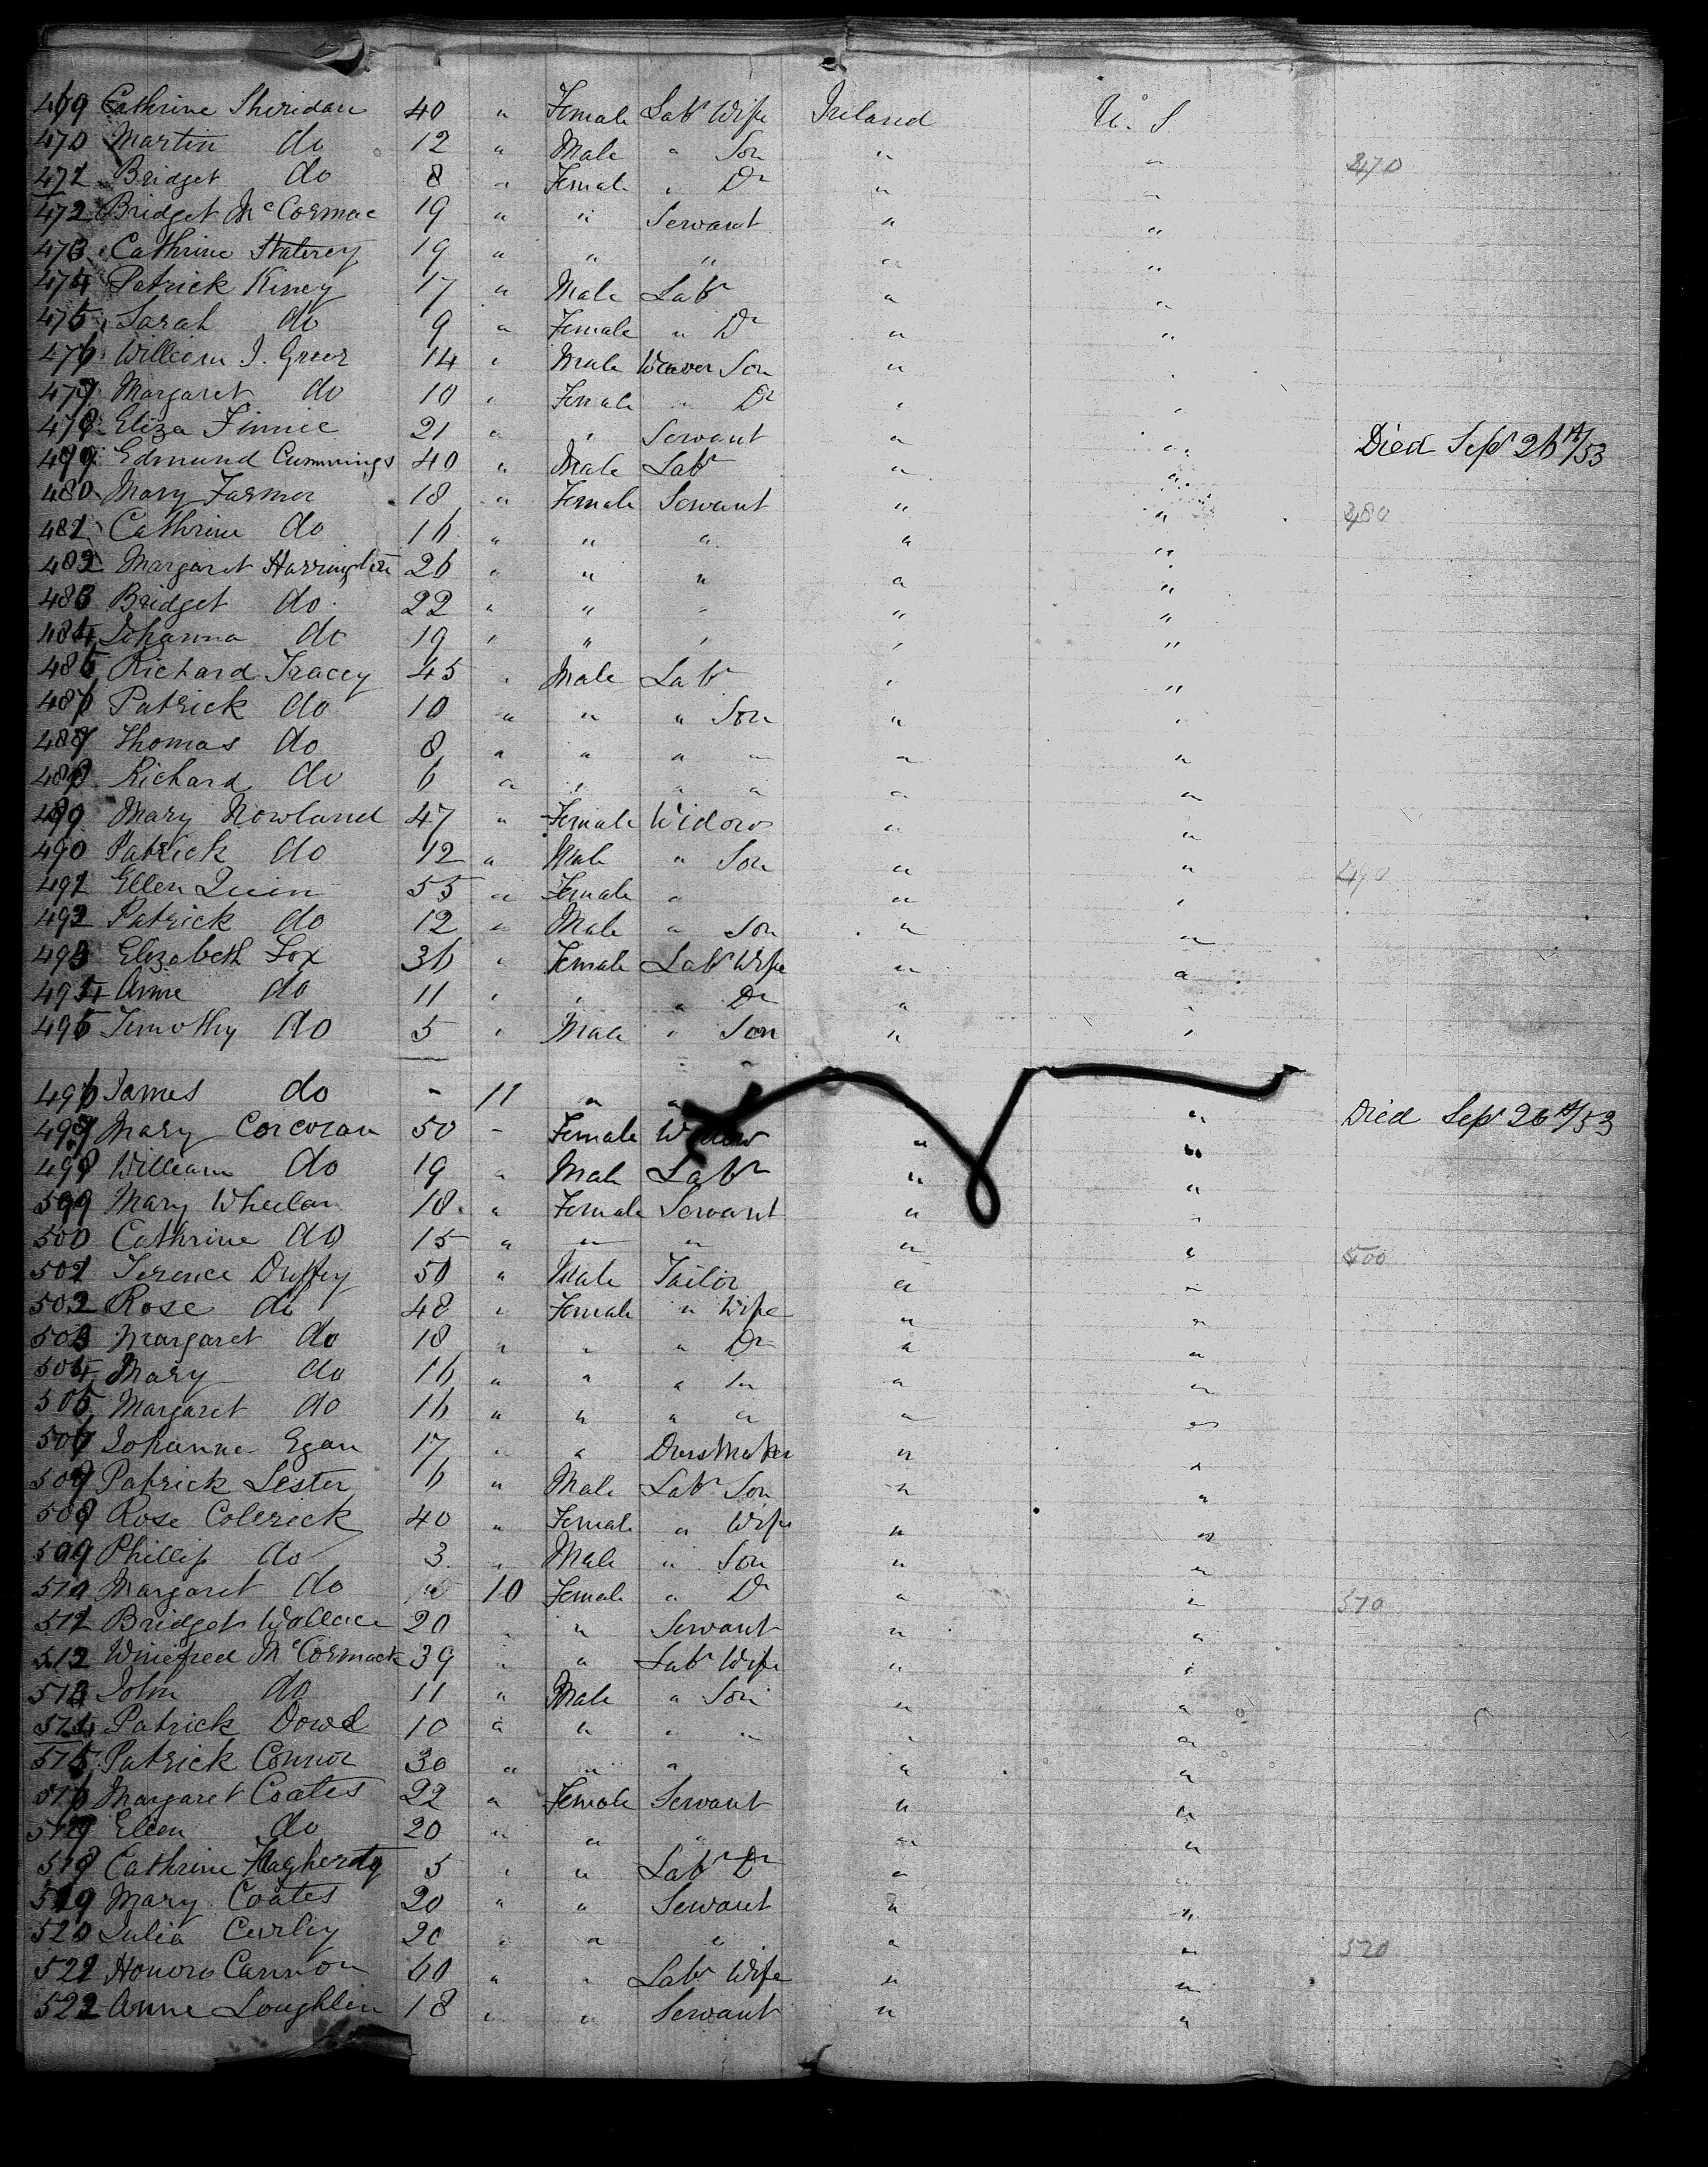 469 Cathrine Sheridan 40 " Female Labr Wife Ireland U. S
470 Martin do 12 " Male " Son " " 470
471 Bridget do 8 " Female " Dr " "
472 Bridget McCormac 19 " " Servant " "
473 Cathrine 19 " " " " "
474 Patrick Kiney 17 " Male Labr " "
475 Sarah do 9 " Female " Dr " "
476 William J. Greer 14 " Male Weaver Son " "
477 Margaret do 10 " Female " Dr " "
478 Eliza Finnie 21 " " Servant " "
479 Edmund Cummings 40 " Male Labr " " Died Sepr 26th/53
480 Mary Farmer 18 " Female Servant " " 480
481 Cathrine do 16 " " " " "
482 Margaret Harrington 26 " " " " "
483 Bridget do 22 " " " " "
484 Johanna do 19 " " " " "
485 Richard Tracey 45 " Male Labr " "
486 Patrick do 10 " " " Son " "
487 Thomas do 8 " " " " " "
488 Richard do 6 " " " " " "
489 Mary Nowland 47 " Female Widow " "
490 Patrick do 12 " Male " Son " " 490
491 Ellen Quin 55 " Female " " "
492 Patrick do 12 " Male " Son " "
493 Elizabeth Fox 36 " Female Labr Wife " "
494 Anne do 11 " " " Dr " "
495 Timothy do 5 " Male " Son " "
496 James do - 11 " " "
497 Mary Corcoran 50 - Female Widow " " Died Sepr 26th/53
498 William do 19 " Male Labr " "
499 Mary Wheelan 18 " Female Servant " "
500 Cathrine do 15 " " " " " 500
501 Terence Duffey 50 " Male Tailor " "
502 Rose do 48 " Female " Wife " "
503 Margaret do 18 " " " Dr " "
504 Mary do 16 " " " " " "
505 Margaret do 16 " " " " " "
506 Johanna Egan 17 " " Dressmaker " "
507 Patrick Lester 6 " Male Labr Son " "
508 Rose Colerick 40 " Female " Wife " "
509 Phillip do 3 " Male " Son " "
510 Margaret do " 10 Female " Dr " " 510
511 Bridget Wallace 20 " " Servant " "
512 Winefred McCormack 39 " " Labr Wife " "
513 John do 11 " Male " Son " "
514 Patrick Dowd 10 " " " " " "
515 Patrick Connor 30 " " " " "
516 Margaret Coates 22 " Female Servant " "
517 Ellen do 20 " " " " "
518 Cathrine Hagherty 5 " " Labr Dr " "
519 Mary Coates 20 " " Servant " "
520 Julia Curley 20 " " " " " 520
521 Honora Cannon 60 " " Labr Wife " "
522 Anne Loughlin 18 " " Servant " "